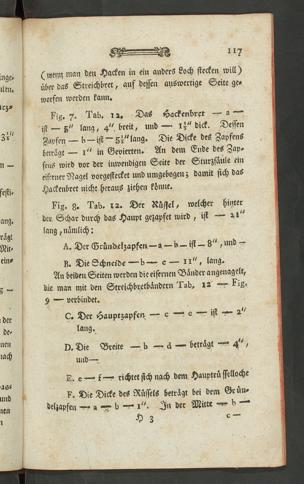 117
(wenn man den Hacken in ein anders Loch stecken will)
über das Streichbret, auf dessen auswertige Seite ge-
worfen werden kann.
Fig. 7. Tab. 12. Das Hackenbret — a —
ist — 5" lang, 4" breit, und — 1½" dick. Dessen
Zapfen — b — ist — 5½" lang. Die Dicke des Zapfens
beträgt — 1" in Gevierten. An dem Ende des Zap-
fens wird vor der inwendigen Seite der Sturzsäule ein
eiserner Nagel vorgestecket und umgebogen; damit sich das
Hackenbret nicht heraus ziehen könne.
Fig. 8. Tab. 12. Der Rüssel, welcher hinter
der Schar durch das Haupt gezapfet wird, ist — 21"
lang, nämlich:
A. Der Gründelzapfen — a — b — ist — 8", und —
B. Die Schneide — b — c — 11", lang.
An beiden Seiten werden die eisernen Bänder angenagelt,
die man mit den Streichbretbändern Tab. 12 — Fig.
9 — verbindet.
C. Der Hauptzapfen — c — e — ist — 2"
lang.
D. Die Breite — b — d — beträgt — 4",
und —
E. e — f — richtet sich nach dem Hauptrüsselloche
F. Die Dicke des Rüssels beträgt bei dem Grün-
delzapfen — a — b — 1". In der Mitte — b —
H 3
c —